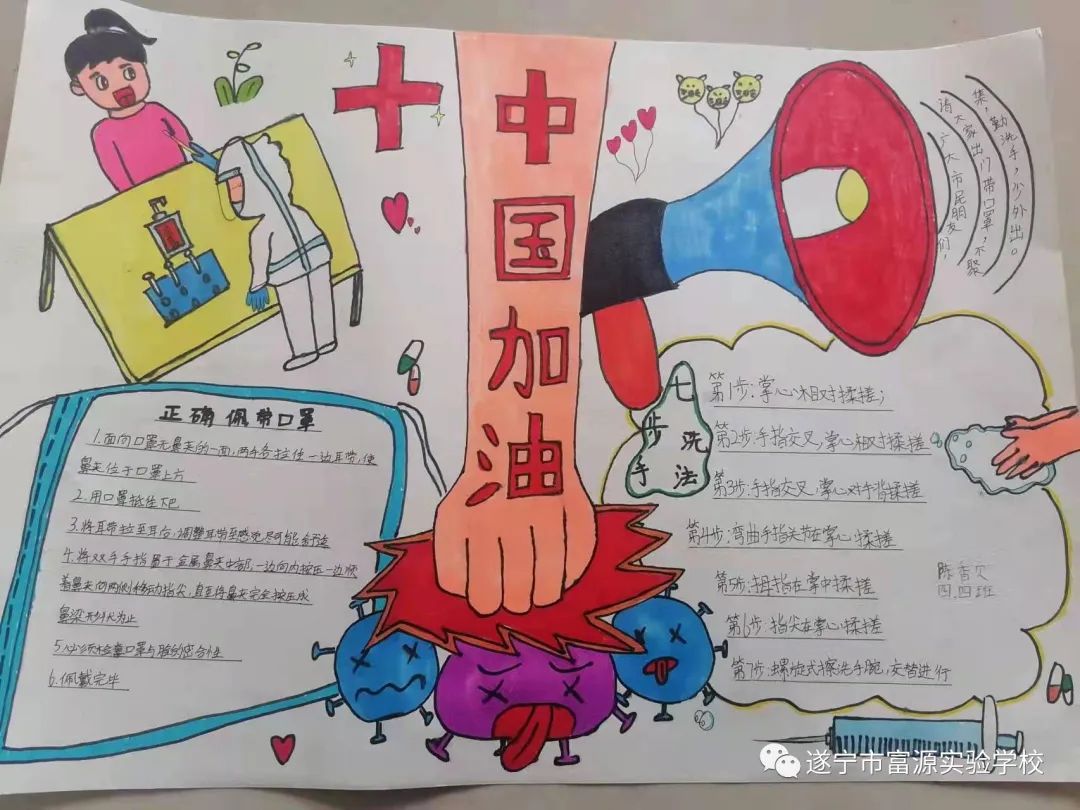 中国加油
广大市民朋友们，
请大家出门带口罩，不聚
集，勤洗手，少外出。
正确佩带口罩
1.面向口罩无鼻夹的一面，两手各拉住一边耳带，使
鼻夹位于口罩上方
2.用口罩抵住下巴
3.将耳带拉至耳后，调整耳带至感觉尽可能舒适
4.将双手手指置于金属鼻夹中部，一边向内按压一边顺
着鼻夹向两侧移动指尖，直至将鼻夹完全按压成
鼻梁形状为止
5.必须检查口罩与脸的密合性
6.佩戴完毕
七步洗手法
第1步：掌心相对揉搓；
第2步：手指交叉，掌心相对揉搓
第3步：手指交叉，掌心对手背揉搓
第4步：弯曲手指关节在掌心揉搓
第5步：拇指在掌中揉搓
第6步：指尖在掌心揉搓
第7步：螺旋式擦洗手腕，交替进行
陈香
四.四班
遂宁市富源实验学校